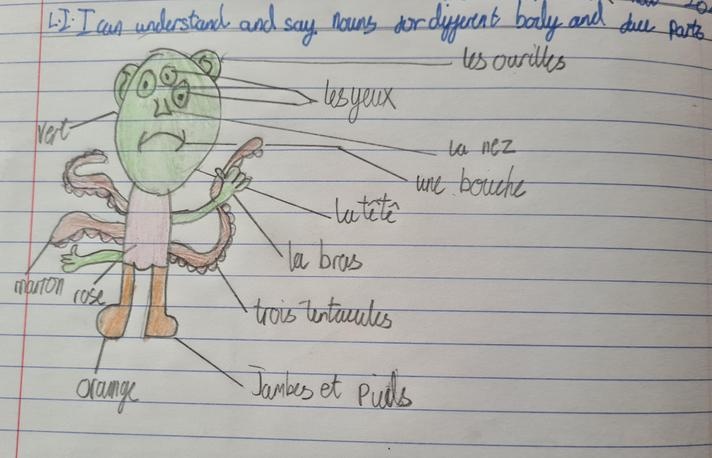 L.I. I can understand and say nouns for different body and face parts
les ourilles
les yeux
vert
la nez
une bouche
la têtê
la bras
marron
rose
trois tentacules
orange
Jambes et pieds